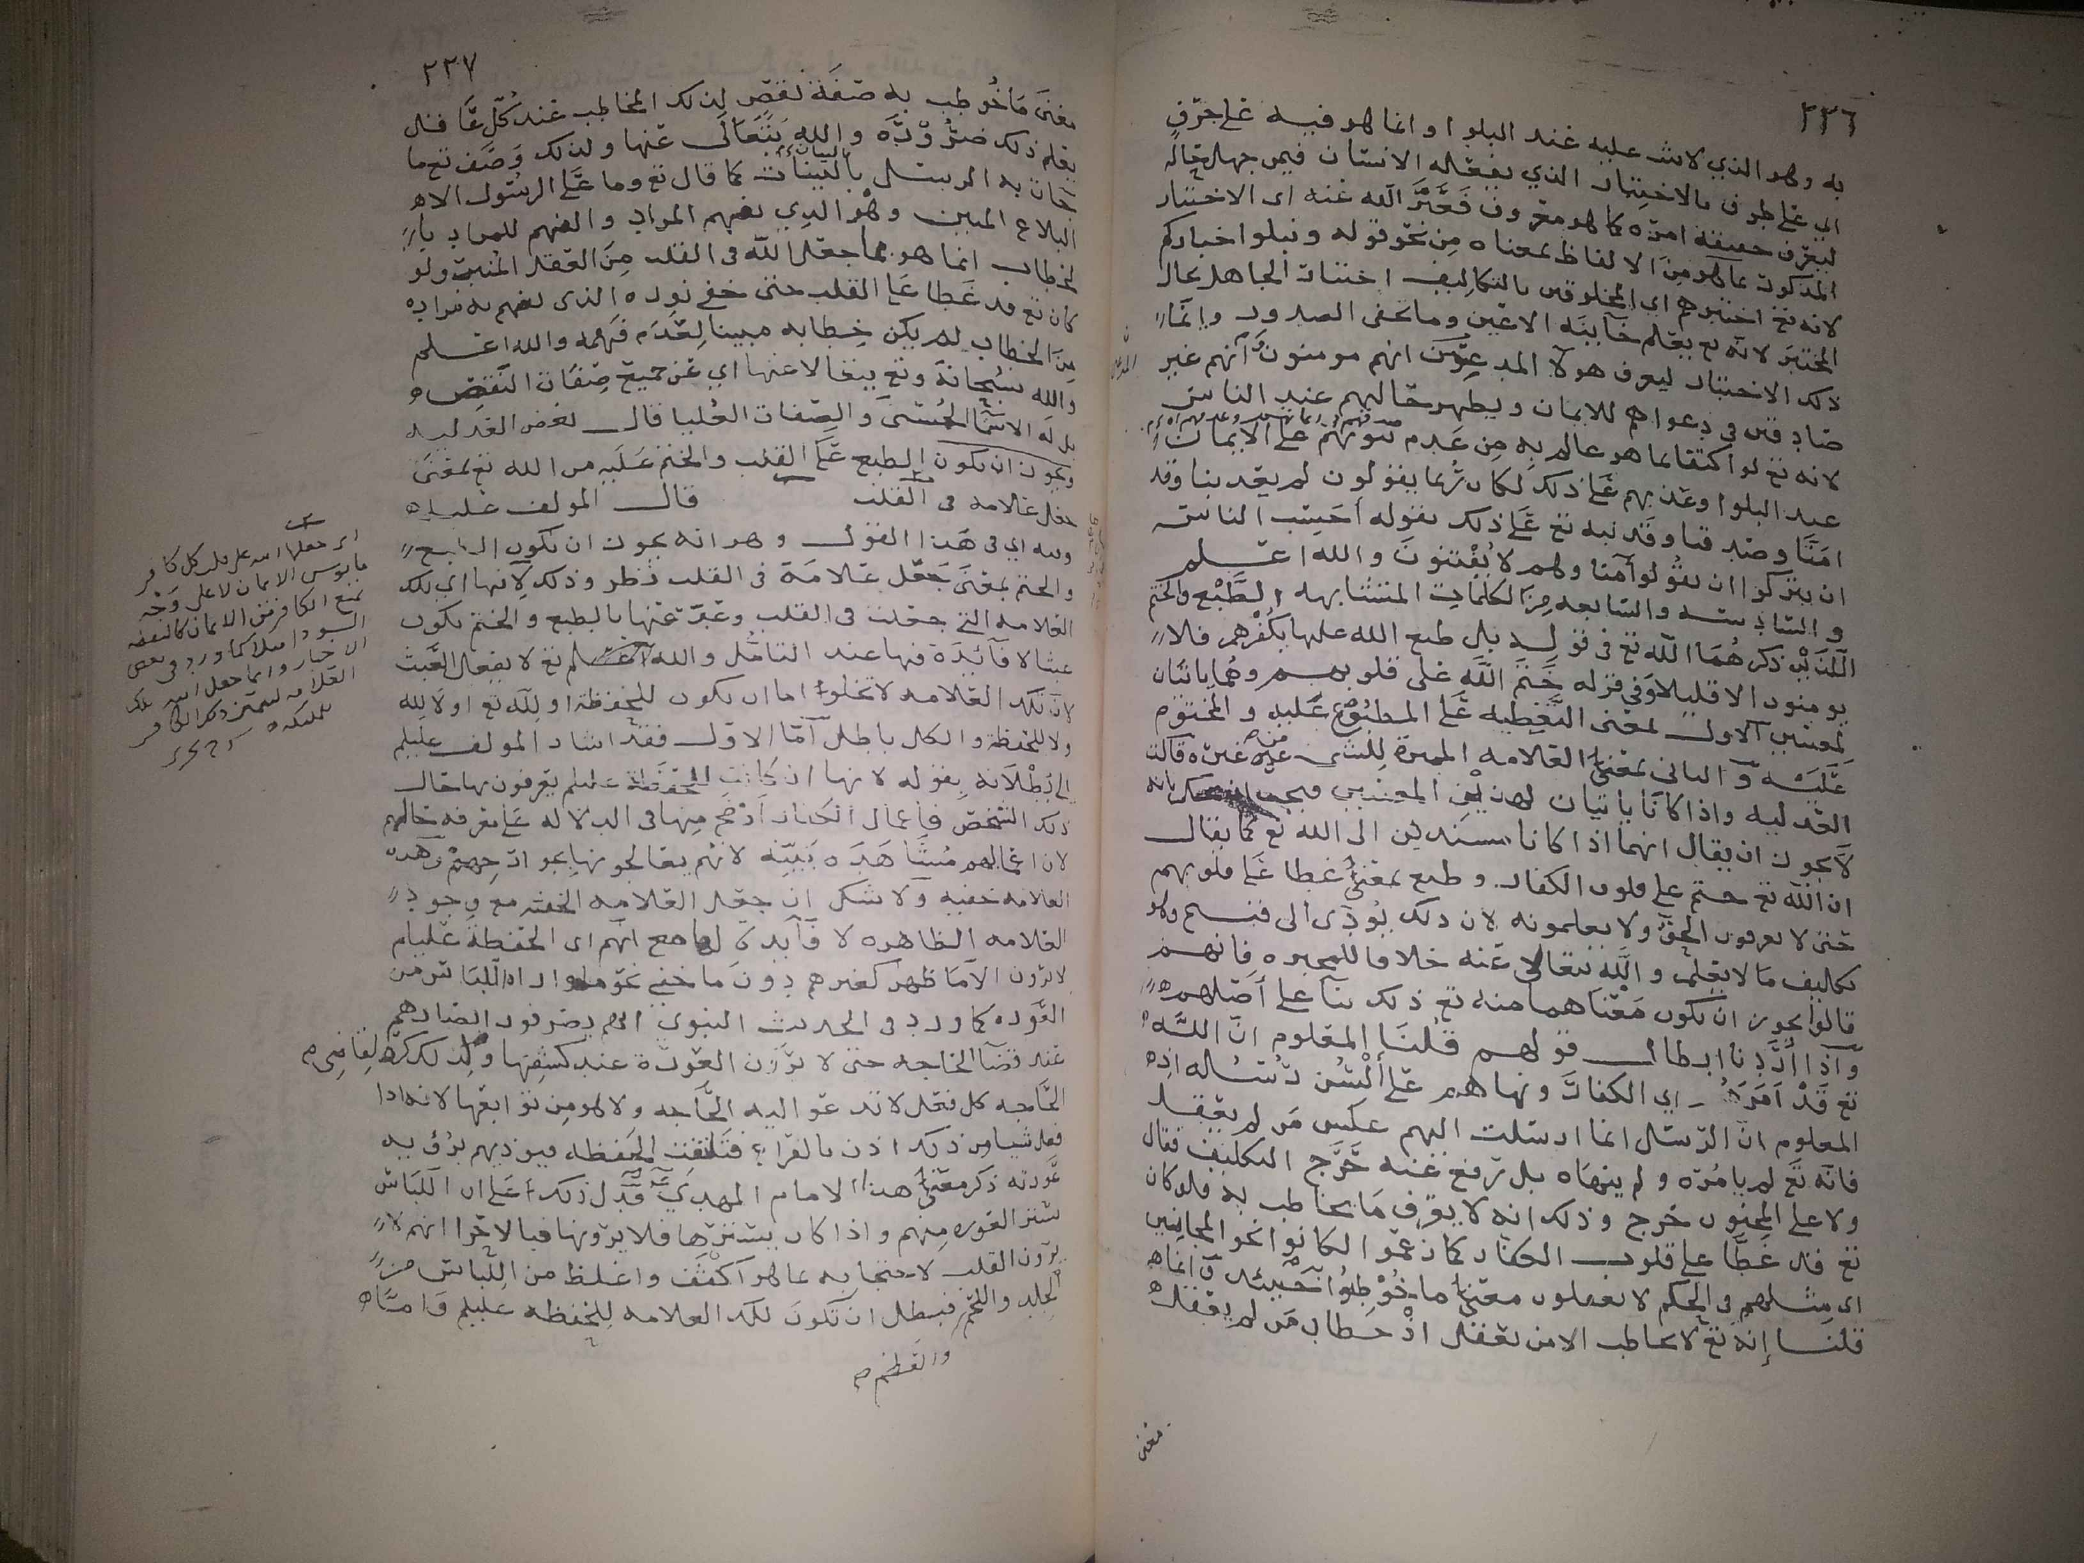 ٢٣٦
به وهو الذي لابث عليه عند البلوا وانما هو فيه على حرف
اي على طرف بالاختبار الذي يفعله الانسان فيمن جهل حاله
ليعرف حقيقة امره كما هو معروف فعبر الله عنه اي الاختبار
المذكور بما هو من الالفاظ بمعناه من نحو قوله ونبلوا اخباركم
لانه تع اختبرهم اي المخلوقين بالتكاليف اختبار الجاهل بحال
المختبر لانه تع يعلم خآينة الاعين وما تخفى الصدور وانما
ذلك الاختبار ليعرف هولآ المدعون انهم مومنون وانهم غير
صادقين في دعواهم للايمان ويظهر حالهم عند الناس
لانه تع لو اكتفا بما هو عالم به من عدم ثبوتهم على الايمان
عند البلوا وعذبهم على ذلك لكان ربما يقولون لم يعذبنا وقد
امنا وصدقنا وقد نبه تع على ذلك بقوله أحسب الناس
ان يتركوا ان يقولوا آمنا وهم لا يفتنون والله اعلم
والسادسه والسابعه من الكلمات المتشابهه الطبع والختم
اللذين ذكرهما الله تع في قوله بل طبع الله عليها بكفرهم فلا
يومنون الا قليلا وفي قوله ختم الله على قلوبهم وهما ياتيان
لمعنيين الاول بمعنى التغطيه على المطبوع عليه والمختوم
عليه والثاني بمعنى العلامه المميزة للشي من غيره قالت
العدليه واذا كانا ياتيان لهذين المعنيين
لا يجوز ان يقال انهما اذا كانا مسندين الى الله تع كما يقال
ان الله تع ختم على قلوب الكفار وطبع بمعنى غطا على قلوبهم
حتى لا يعرفون الحق ولا يعلمونه لان ذلك يؤدي الى قبيح وهو
تكليف ما لا يعلم والله يتعالى عنه خلافا للمجبره فانهم
قالوا يجوز ان يكون معناهما منه تع ذلك بنآ على أصلهم
واذا أردنا ابطال قولهم قلنا المعلوم ان الله
تع قد أمرهم اي الكفار ونهاهم على ألسن رسله اذ
المعلوم ان الرسل انما ارسلت اليهم عكس من لم يعقل
فانه تع لم يأمره ولم ينهاه بل رفع عنه حرج التكليف فقال
ولا على المجنون حرج وذلك انه لا يعرف ما يخاطب به فلو كان
تع قد غطا على قلوب الكفار كما زعموا لكانوا نحو المجانين
اي مثلهم في الحكم لا يعقلون معنى ما خوطبوا حينئذ
قلنا إنه تع لا يخاطب الا من يعقل اذ خطاب من لم يعقل
معنى
٢٣٧
معنى ما خوطب به صفة نقص لذلك المخاطب عند كل عاقل
يعلم ذلك ضرورة والله يتعالى عنها ولذلك وصف تع ما
جآت به الرسل بالبينات كما قال تع وما على الرسول الا
البلاغ المبين وهو الذي يفهم المراد والفهم للمراد بال
لخطاب انما هو بما جعل الله في القلب من العقل المنبت ولو
كان تع قد غطا على القلب حتى خفي نوره الذي يفهم به مراده
من الخطاب لم يكن خطابه مبينا لعدم فهمه والله اعلم
والله سبحانه وتع يتعالا عنها اي عن جميع صفات النقص
بل له الاسما الحسنى والصفات العليا قال بعض العدليه
ويجوز ان يكون الطبع على القلب والختم عليه من الله تع بمعنى
جعل علامه في القلب قال المولف عليلم
وفيه اي في هذا القول وهو انه يجوز ان يكون الطبع
والختم بمعنى جعل علامة في القلب نظر وذلك لانها اي تلك
العلامه التي جعلت في القلب وعبر عنها بالطبع والختم تكون
عبثا لا فآئدة فيها عند التامل والله تع لا يفعل العبث
لان تلك العلامه لا تخلوا اما ان تكون للحفظة او لله تع او لا لله
ولا للحفظة والكل باطل أما الاول فقد اشار المولف عليلم
الى بطلانه بقوله لانها ان كانت للحفظة عليلم يعرفون بها حال
ذلك الشخص فأعمال الكفار أوضح منها في الدلاله على معرفه حالهم
لان اعمالهم مشاهده بينه لانهم يعالجونها بجوارحهم وهذه
العلامه خفيه ولا شك ان جعل العلامه الخفيه مع وجود
العلامه الظاهره لا فآيدة لها مع انهم اي الحفظة عليلم
لا يرون الا ما ظهر كغيرهم دون ما خفي نحو ما واراه اللباس من
العوره كما ورد في الحديث النبوي انهم يصرفون ابصارهم
عند قضآ الحاجه حتى لا يرون العورة عند كشفها ولذلك كره لقاضي
الحاجه كل فعل لا تدعوا اليه الحاجه ولا هو من توابعها لانه اذا
فعل شيا من ذلك اذن بالفراغ فتلتفت الحفظه فيوذيهم برؤيه
عورته ذكر معنى هذا الامام المهدي فدل ذلك على ان اللباس
ستر العوره منهم واذا كان يسترها فلا يرونها فبالاحرا انهم لا
يرون القلب لاحتجابه بما هو أكثف واغلظ من اللباس من
الجلد واللحم فبطل ان تكون تلك العلامه للحفظه عليلم واما
والعظم
اي جعلها الله على قلب كل كافر
مايوس الايمان لا على وجه
يمنع الكافر من الايمان كالنقطه
السودا مثلا كما ورد في بعض
الاخبار وانما جعل الله تلك
العلامه لتميز ذلك الكافر
للملائكه